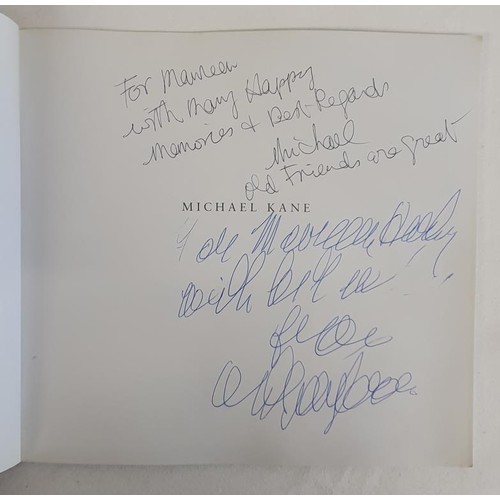 For Maureen
with Many Happy
Memories & Best Regards
Michael
old Friends are great
MICHAEL KANE
For Maureen
with
from